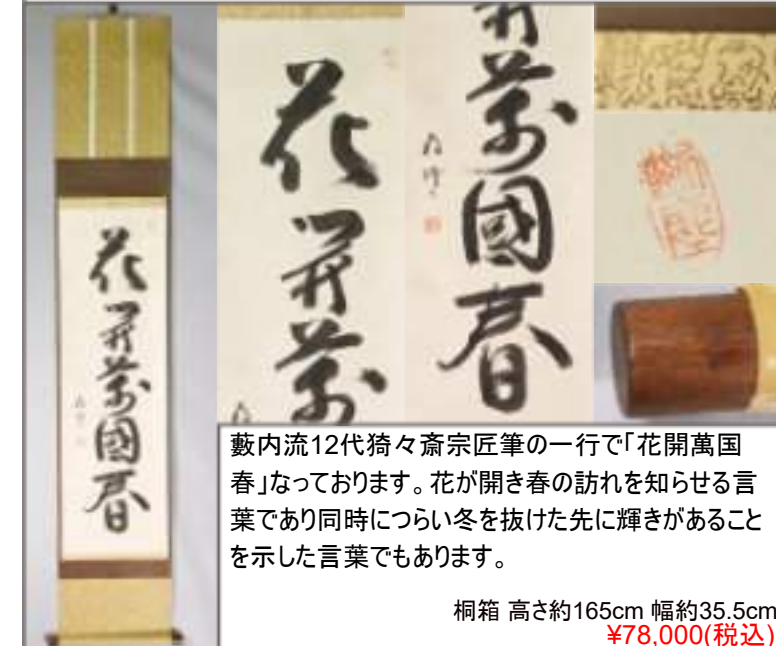 花開萬國春
花開萬
開萬國春
藪内流12代猗々斎宗匠筆の一行で「花開萬国
春」なっております。花が開き春の訪れを知らせる言
葉であり同時につらい冬を抜けた先に輝きがあること
を示した言葉でもあります。
桐箱 高さ約165cm 幅約35.5cm
¥78,000(税込)